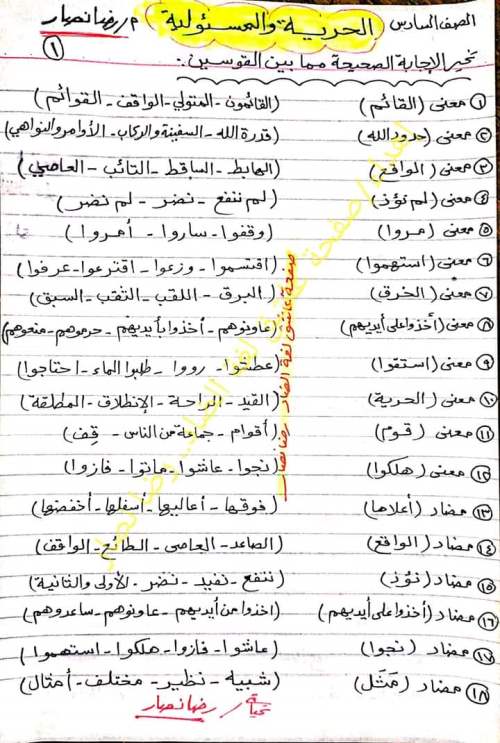 الصف السادس الحرية والمسئولية م/رضا نصار
١
تخير الإجابة الصحيحة مما بين القوسين :-
① معنى (القائم) (القائمون - المتولي - الواقف - القوائم)
② معنى (حدود الله) (قدرة الله - السفينة والركاب - الأوامر والنواهي)
③ معنى (الواقع) (الهابط - الساقط - التائب - العاصي)
④ معنى (لم نؤذ) (لم ننفع - نضر - لم نضر)
⑤ معنى (مروا) (وقفوا - ساروا - أمروا)
⑥ معنى (استهموا) (اقتسموا - وزعوا - اقترعوا - عرفوا)
⑦ معنى (الخرق) (البرق - اللقب - الثقب - السبق)
⑧ معنى (أخذوا على أيديهم) (عاونوهم - أخذوا بأيديهم - حرموهم - منعوهم)
⑨ معنى (استقوا) (عطشوا - رووا - طلبوا الماء - احتاجوا)
⑩ معنى (الحرية) (القيد - الراحة - الإنطلاق - المطلقة)
⑪ معنى (قوم) (أقوام - جماعة من الناس - قف)
⑫ معنى (هلكوا) (نجوا - عاشوا - ماتوا - فازوا)
⑬ مضاد (أعلاها) (فوقها - أعاليها - أسفلها - أخفضها)
⑭ مضاد (الواقع) (الصاعد - العاصى - الطائع - الواقف)
⑮ مضاد (نؤذ) (ننفع - نفيد - نضر - الأولى والثانية)
⑯ مضاد (أخذوا على أيديهم) (اخذوا من أيديهم - عاونوهم - ساعدوهم)
⑰ مضاد (نجوا) (عاشوا - فازوا - هلكوا - استهموا)
⑱ مضاد (مَثَل) (شبيه - نظير - مختلف - أمثال)
رضا نصار
صفحة عاشق لغة الضاد رضا نصار